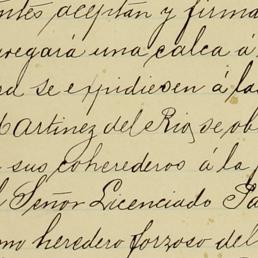 ntes aceptan y firma
regará una calca á
ra se expidiesen á la
Martinez del Rio, se ob
sus coherederos á la
Señor Licenciado
mo heredero forzoso del